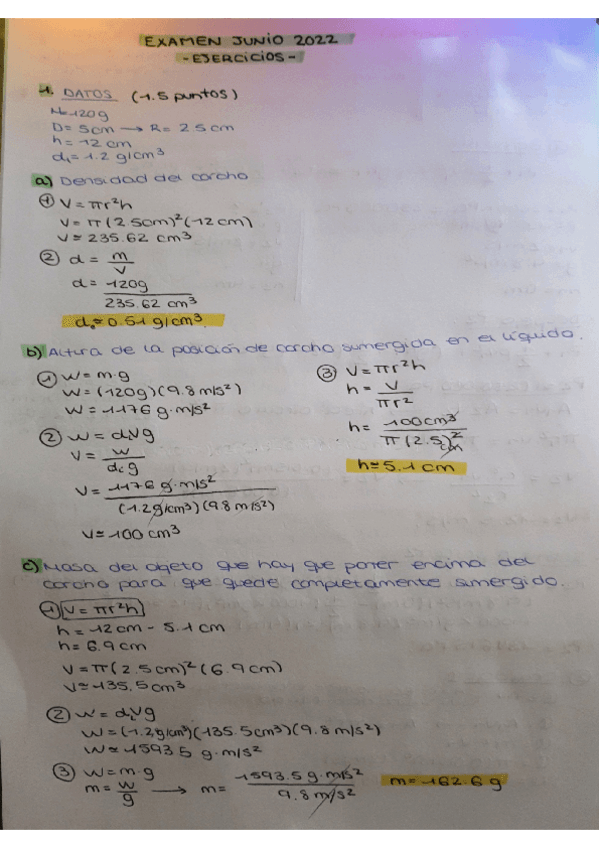 EXAMEN JUNIO 2022
- EJERCICIOS -
1. DATOS (1.5 puntos)
M=120g
D= 5cm → R= 2.5 cm
h= 12 cm
dₗ= 1.2 g/cm³
a) Densidad del corcho
① V= πr²h
V= π(2.5cm)²(12 cm)
V≈ 235.62 cm³
② d= m/V
d= 120g / 235.62 cm³
d≈ 0.51 g/cm³
b) Altura de la posición de corcho sumergida en el líquido.
① W= m·g
W= (120g)(9.8 m/s²)
W= 1176 g·m/s²
② W= dₗVg
V= W / dₗg
V= 1176 g·m/s² / (1.2g/cm³)(9.8 m/s²)
V≈ 100 cm³
③ V= πr²h
h= V / πr²
h= 100cm³ / π(2.5 cm)²
h≈ 5.1 cm
c) Masa del objeto que hay que poner encima del
corcho para que quede completamente sumergido.
① V= πr²h
h= 12cm - 5.1 cm
h= 6.9 cm
V= π(2.5 cm)²(6.9 cm)
V≈ 135.5 cm³
② W= dₗVg
W= (1.2g/cm³)(135.5cm³)(9.8 m/s²)
W≈ 1593.5 g·m/s²
③ W= m·g
m= W/g → m= 1593.5 g·m/s² / 9.8 m/s² m= 162.6 g